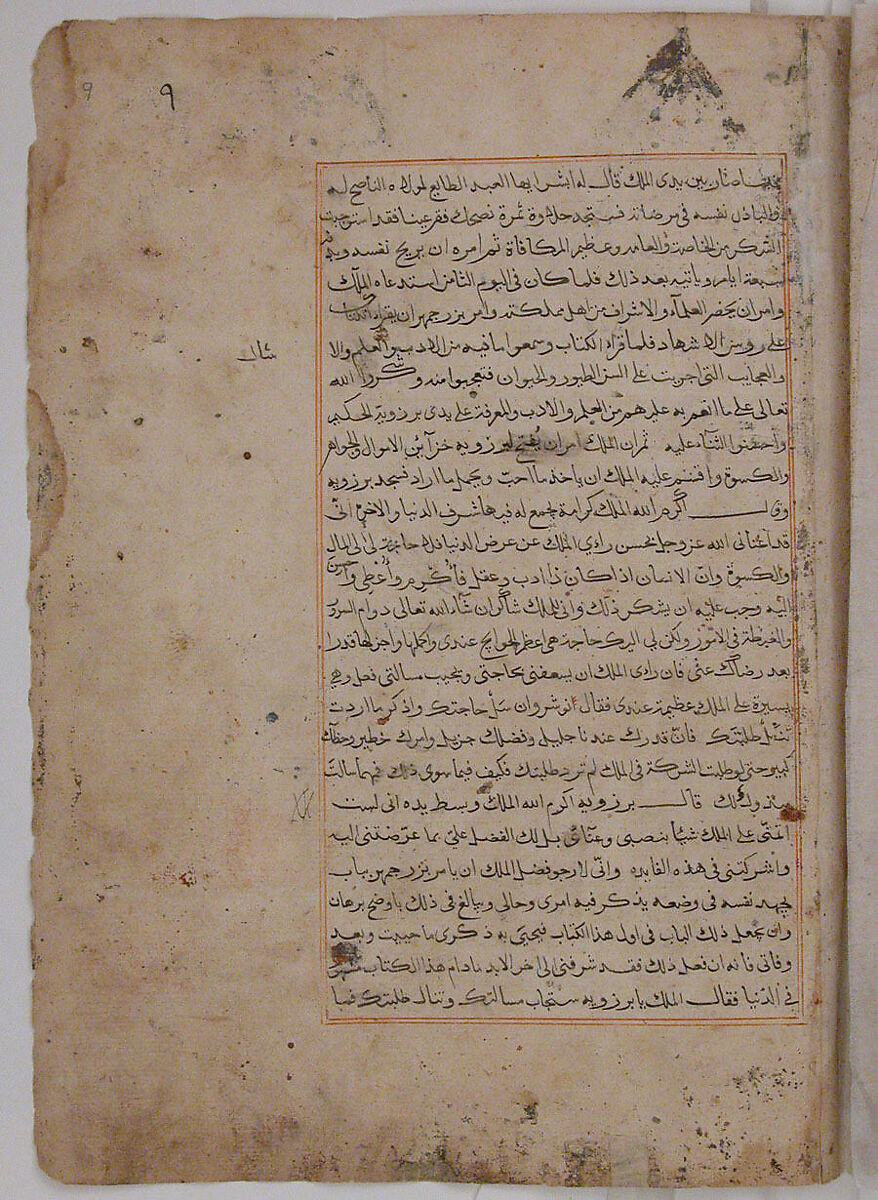 9 9
صار بين يدى الملك قال له ابشر ايها العبد الطايع لمولاه الناصح له
والباذل نفسه فى مرضاته فستجد حلاوة ثمرة نصحك فقر عينا فقد استوجبت
الشكر من الخاصة والعامة وعظيم المكافاة ثم امره ان يريح نفسه
سبعة ايام وياتيه بعد ذلك فلما كان فى اليوم الثامن استدعاه الملك
وامر ان يحضر العلمآء والاشراف من اهل مملكته وامر بزرجمهر ان يقراء الكتاب
على روس الاشهاد فلما قراء الكتاب وسمعوا ما فيه من الادب والعلم والا
مثال
والعجايب التى اجريت على السن الطيور والحيوان فتعجبوا منه وشكروا الله
تعالى على ما انعم به عليهم من العلم والادب والمعرفة على يدى برزويه الحكيم
واحسنوا الثنآء عليه ثم ان الملك امر ان يفتح لبرزويه خزآين الاموال والجواهر
والكسوة واقسم عليه الملك ان ياخذ ما احب ويحمل ما اراد فسجد برزويه
وقال اكرم الله الملك كرامة يجمع له فيها شرف الدنيا والاخرة انى
قد اغنانى الله عز وجل بحسن راي الملك عن عرض الدنيا فلا حاجة لى الى المال
والكسوة وان الانسان اذا كان ذا ادب وعقل فأكرم وأعطى واحسن
اليه وجب عليه ان يشكر ذلك وانى للملك شاكر ان شآء الله تعالى دوام السرور
والغبطة فى الامور ولكن لى اليك حاجة هى اعظم الحوايج عندى واكملها واجزلها قدرا
بعد رضاك عنى فان راى الملك ان يسعفنى بحاجتى ويجيب مسالتى فعل وهى
يسيرة على الملك عظيمة عندى فقال انوشروان سل حاجتك واذكر ما اردت
طلبتك فان قدرك عندنا جليل وفضلك جزيل وامرك خطير وحقك
كبير حتى لو طلبت الشركة فى الملك لم ترد طلبتك فكيف فيما سوى ذلك فمهما سالت
مبذول لك قال برزويه اكرم الله الملك وبسط يده انى لست
امتن على الملك شيأ بنصبى وعنائى بل لك الفضل على بما عرضتنى اليه
واشركتنى فى هذه الفايده وانى لارجو فضل الملك ان يامر بزرجمهر بباب
يجهد نفسه فى وضعه يذكر فيه امرى وحالى ويبالغ فى ذلك باوضح برهان
وان يجعل ذلك الباب فى اول هذا الكتاب فيحيى به ذكرى ما حييت وبعد
وفاتى فانه ان فعل ذلك فقد شرفنى الى اخر الابد ما دام هذا الكتاب
فى الدنيا فقال الملك يا برزويه ستجاب مسالتك وتنال طلبتك فيا